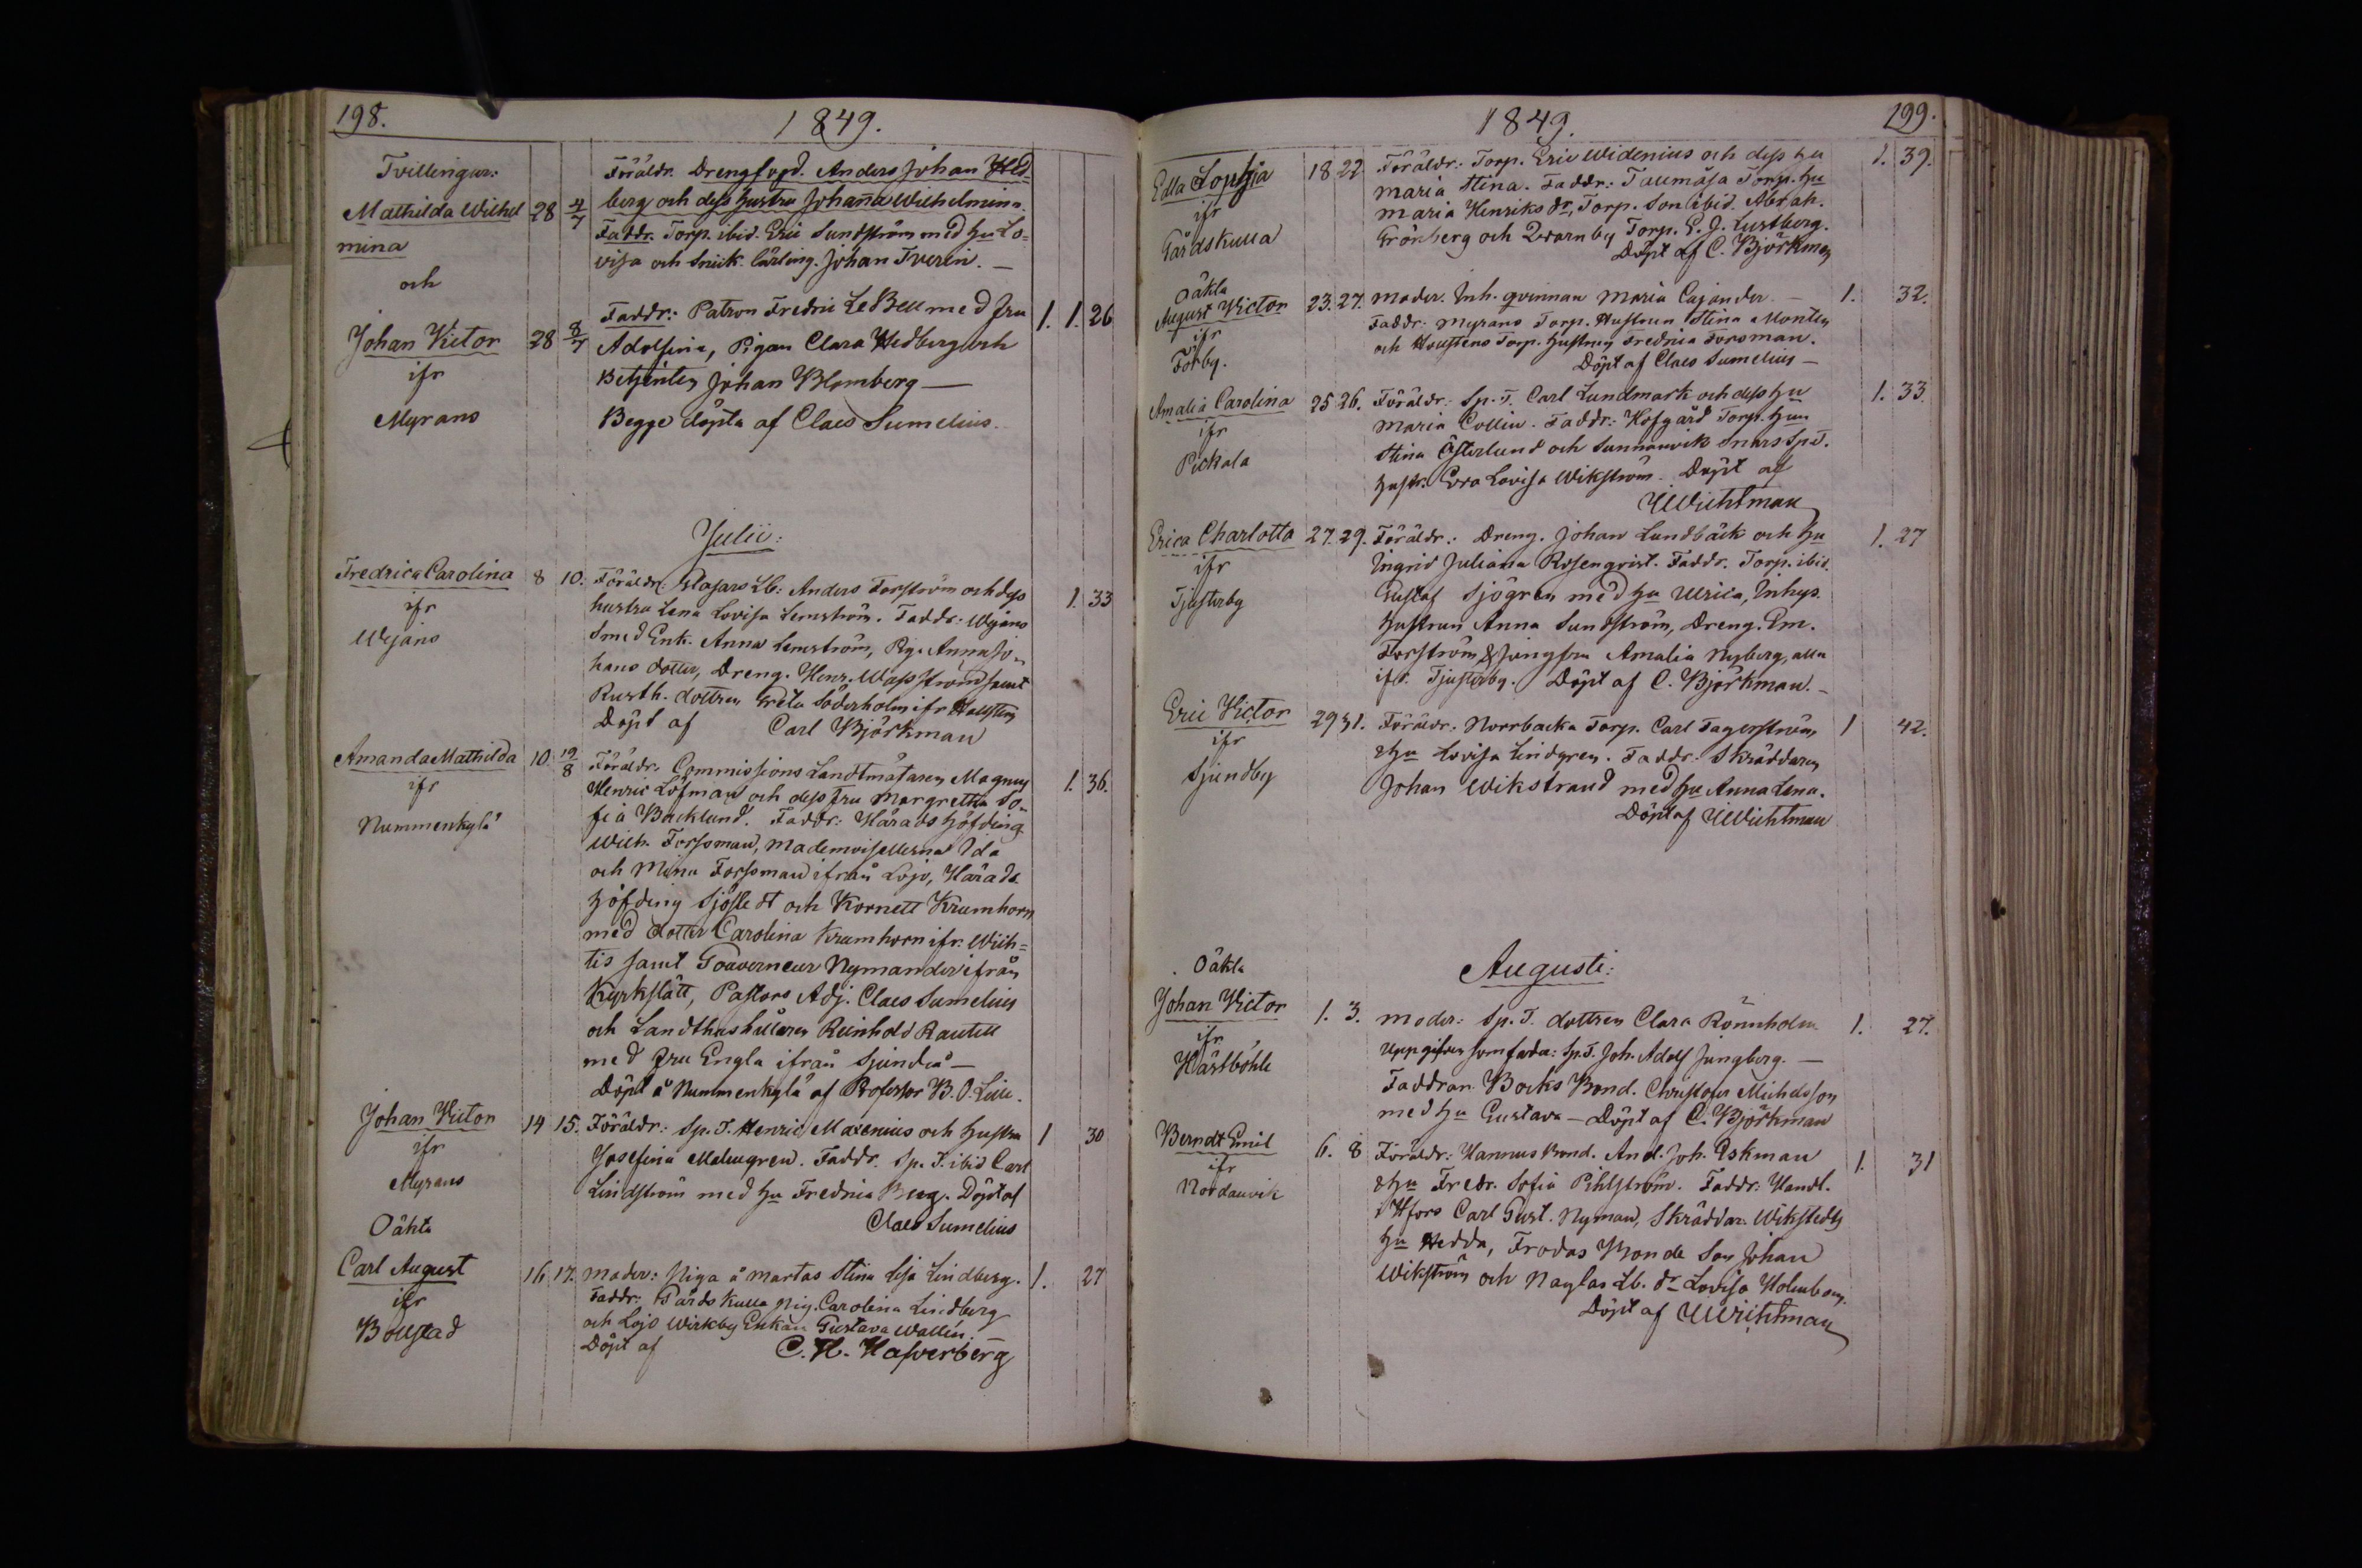 198.
1849.
Tvillingar:
Mathilda Wilhel
mina
28 4/7
Föräldr. Drengfogd. Anders Johan Hed=
berg och dess hustru Johanna Wilhelmina.
Faddr. Torp. ibid. Eric Sundström med Hu Lo=
visa och Snick. lärling. Johan Tveren. —
och
Johan Victor
ifr
Myrans
28 8/7
Faddr: Patron Fredric LeBell med fru
Adolfina, Pigan Clara Hedberg och
Betjenten Johan Blomberg —
Begge döpta af Claes Sumelius.
1. 1. 26
Julii:
Fredrica Carolina
ifr
Wejans
8 10.
Föräldr: Lb: Anders Forström och dess
hustru Lena Lovisa Lemström. Faddr: Wejans
Smed Enk. Anna Lemström, Pig. Anna Jo=
hans dotter, Dreng. Henr. Wasström samt
Rusth. dottren Greta Söderholm ifr
Döpt af Carl Björkman
1. 33
Amanda Mathilda
ifr
Nummenkylä
10. 19/8
Föräldr. Commissions Landtmätaren Magnus
Henric Löfman och dess Fru Margretha So=
fia Backlund. Faddr: Härads höfding
Wilh. Forssman, Mademoisellerna Ida
och Mina Forssman ifrån Lojo, Härads
höfding Sjöstedt och Kornett Krumhorn
med dotter Carolina Krumhorn ifr. Wich=
tis samt Gouverneur Nymander ifrån
Kyrkslätt, Pastors Adj. Claes Sumelius
och Landthushållaren Reinhold Rautell
med Fru Engla ifrån Sjundeå —
Döpt å Nummenkylä af Professor B. O. Lille.
1. 36.
Johan Victor
ifr
Myrans
14 15.
Föräldr: Sp. T. Henric Maxenius och hustru
Josefina Malmgren. Faddr. Sp. T. ibid Carl
Lindström med Hu Fredrica Berg. Döpt af
Claes Sumelius
1 30
Oäkta
Carl August
ifr
Bollstad
16 17.
Moder: Piga å Martas Stina Lisa Lindberg.
Faddr: Gårds Kulla Pig. Carolina Lindberg
och Lojo Wirkby Enkan Gustava Wallin. —
Döpt af C. H. Hasverberg
1. 27
1849.
199.
Edla Sophia
ifr
Gårdskulla
18 22
Föräldr: Torp. Eric Widenius och dess Hu
Maria Stina. Faddr: Torp. Hu
Maria Henriks dr, Torp. Son ibid. Abrah.
Grönberg och Qvarnby Torp. G. J. Lustberg.
Döpt af C. Björkman
1. 39.
Oäkta
August Victor
ifr
Förby.
23. 27.
Moder. Inh. qvinnan Maria Cajander. —
Faddr: Myrans Torp. Hustrun Stina Montin
och Torp. hustrun Fredrica Forsman.
Döpt af Claes Sumelius —
1. 32.
Amalia Carolina
ifr
Pickala
25 26.
Föräldr: Sp. T. Carl Lundmark och dess Hu
Maria Collin. Faddr: Hofgård Torp. Hun
Stina Österlund och Sunnanvik Snars Sp T.
hustr. Eva Lovisa Wikström. Döpt af
UWichtman
1. 33.
Erica Charlotta
ifr
Tjusterby
27. 29.
Föräldr: Dreng. Johan Lundbäck och Hu
Ingrid Juliana Rosenqvist. Faddr. Torp. ibid.
Gustaf Sjögren med Hu Ulrica, Inhys.
hustrun Anna Sundström, Dreng. Em.
Forström & jungfru Amalia Nyberg, alla
ifr. Tjusterby. Döpt af C. Björkman. —
1. 27
Eric Victor
ifr
Sjundby
29 31.
Föräldr: Norrbacka Torp. Carl Fagerström,
& Hu Lovisa Lindgren. Faddr. Skräddaren
Johan Wikstrand med Hu Anna Lena.
Döpt af UWichtman
1 42.
Augusti:
Oäkta
Johan Victor
ifr
Hästböhle
1. 3.
Moder: Sp. T. dottren Clara Rönnholm
Uppgifven som fader: Sp. T. Joh. Adolf Jungberg. —
Faddrar. Bocks Bond. Christofer Michelsson
med Hu Gustava — Döpt af C. Björkman
1. 27.
Berndt Emil
ifr
Nordanvik
6. 8
Föräldr: Hannus Bond. And. Joh. Eskman
& Hu Fredr. Sofia Pihlström. Faddr: Handl.
i Hfors Carl Gust. Nyman, Skräddar. Wikstedts
Hu Hedda, Frodas Bonde Son Johan
Wikström och Naglas Lb. dr Lovisa Holmberg.
Döpt af UWichtman
1. 31